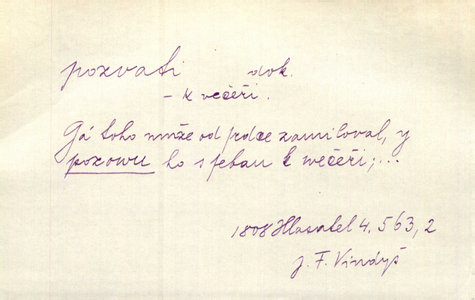 pozvati dok.
– k večeři.
Gá toho muže od srdce zamiloval, y
pozowu ho s sebau k wečeři; . . .
1808 Hlasatel 4. 563, 2
J. F. Vindyš